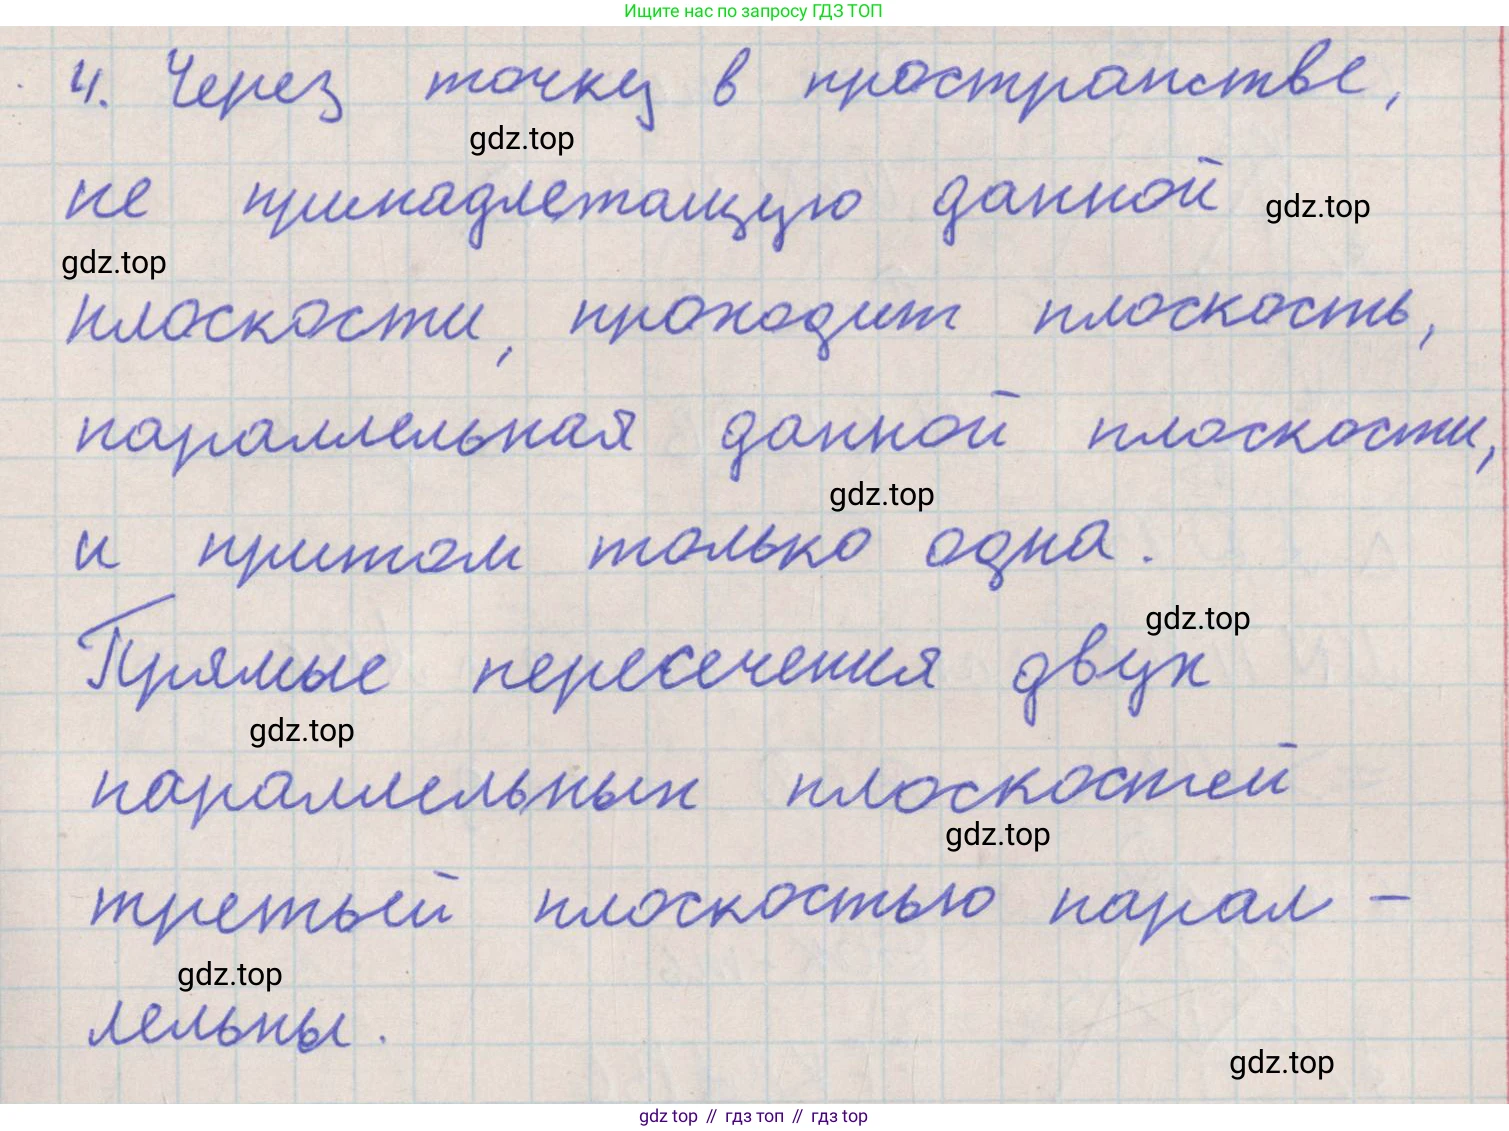 Ищите нас по запросу ГДЗ ТОП
4. Через точку в пространстве,
gdz.top
не принадлежащую данной
gdz.top
gdz.top
плоскости, проходит плоскость,
параллельная данной плоскости,
gdz.top
и притом только одна.
gdz.top
Прямые пересечения двух
gdz.top
параллельных плоскостей
gdz.top
третьей плоскостью парал-
gdz.top
лельны.
gdz.top
gdz top // гдз топ // гдз top